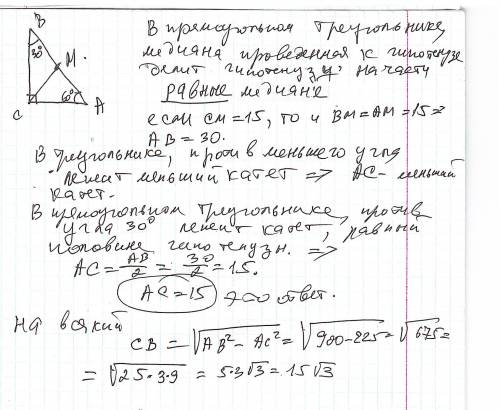 B
30°
M.
60°
C
A
В прямоугольном треугольнике
медиана проведенная к гипотенузе
делит гипотенузу на части
равные медиане
если СМ=15, то и ВМ=АМ=15⇒
АВ=30.
В треугольнике, против меньшего угла
лежит меньший катет ⇒ АС- меньший
катет.
В прямоугольном треугольнике, против
угла 30° лежит катет, равный
половине гипотенузы. ⇒
АС = АВ/2 = 30/2 = 15.
АС=15 это ответ.
на всякий
СВ = √АВ² - АС² = √900-225 = √675 =
= √25·3·9 = 5·3√3 = 15√3